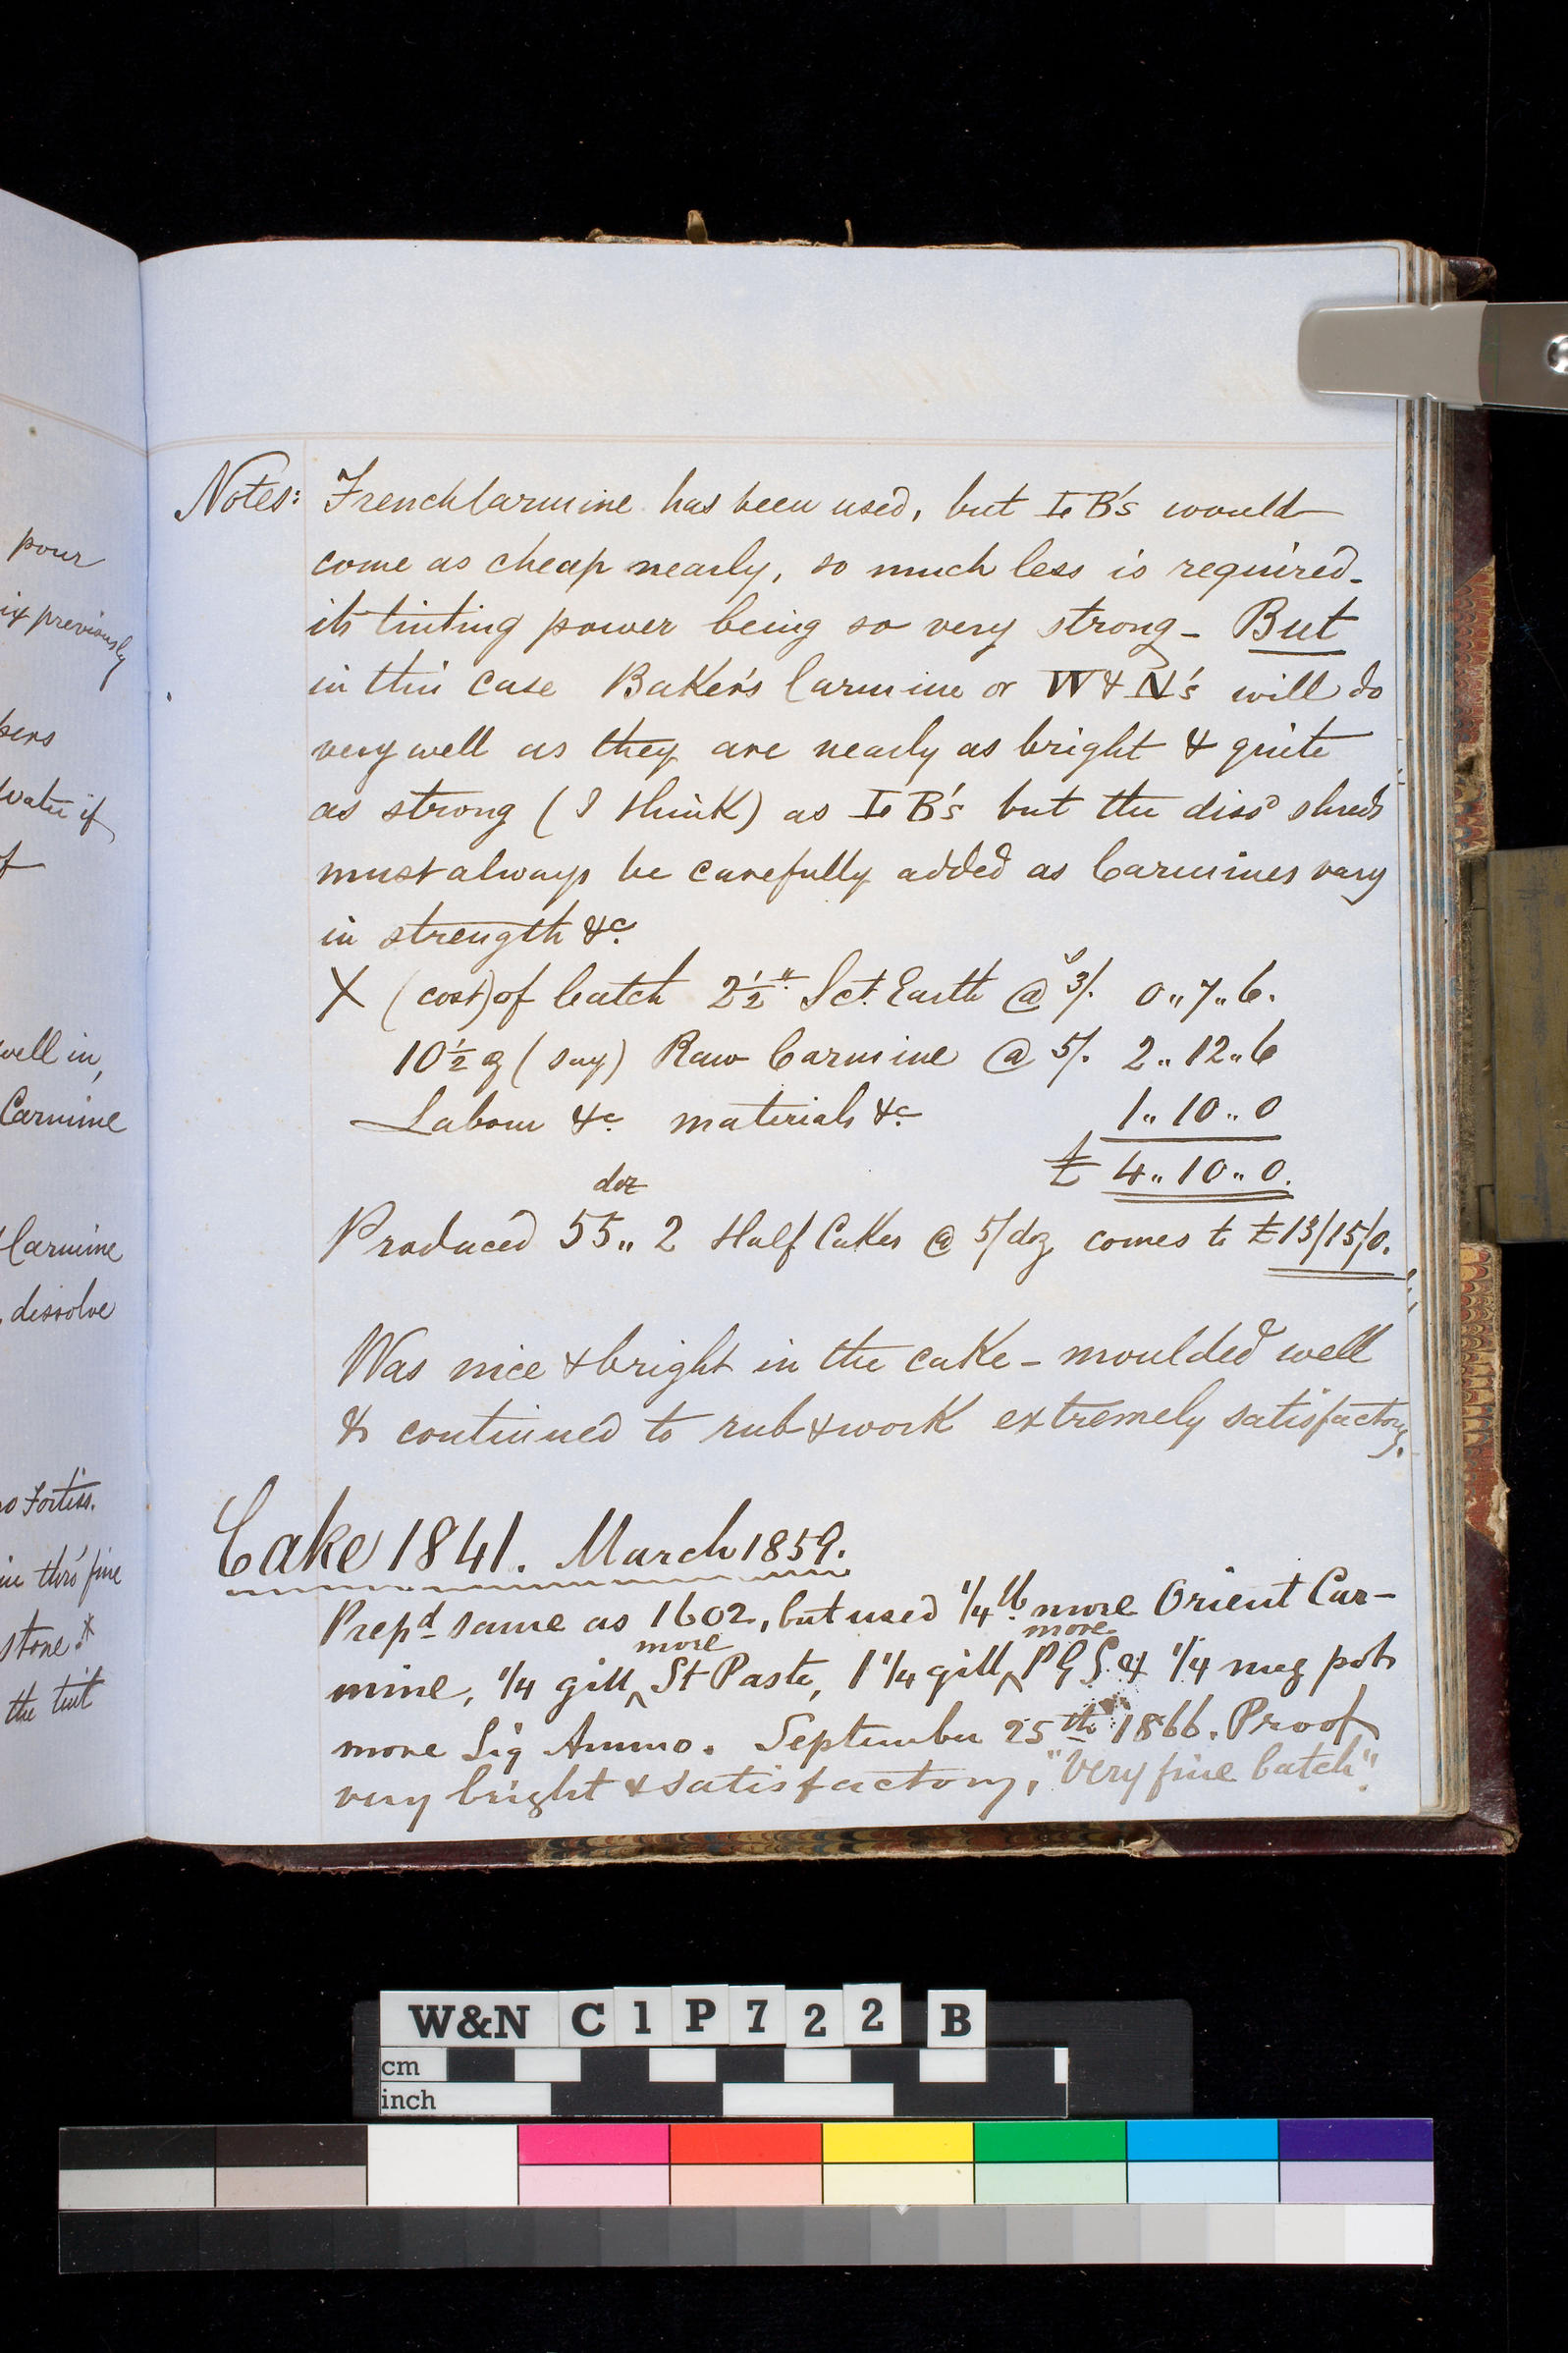 pour
ix previously
pens
Water if
f
well in,
Carmine
Carmine
, dissolve
o Fortiss.
in thro' fine
stone.*
the tint
Notes: French Carmine has been used, but Io B's would
come as cheap nearly, so much less is required-
its tinting power being so very strong - But
in this case Baker's Carmine or W & N's will do
very well as they are nearly as bright & quite
as strong (I think) as Io B's but the dissd shreds
must always be carefully added as Carmines vary
in strength &c.
X (cost) of batch 2½ " Sct. Earth @ 3/. 0,,7,,6.
10½ oz (say) Raw Carmine @ 5/. 2,,12,,6
Labour &c. materials &c. 1,,10,,0
£ 4,,10,,0.
doz
Produced 55,,2 Half Cakes @ 5/doz comes to £13/15/0.
Was nice & bright in the cake - moulded well
& continued to rub & work extremely satisfactory.
Cake 1841. March 1859.
Prepd same as 1602, but used 1/4 lb. more Orient Car-
more more
mine, 1/4 gill ^ St Paste, 1 1/4 gill ^ P G S. & 1/4 meg pot
more Liq Ammo. September 25th 1866. Proof
very bright & satisfactory, "Very fine batch".
W&N C 1 P 7 2 2 B
cm
inch